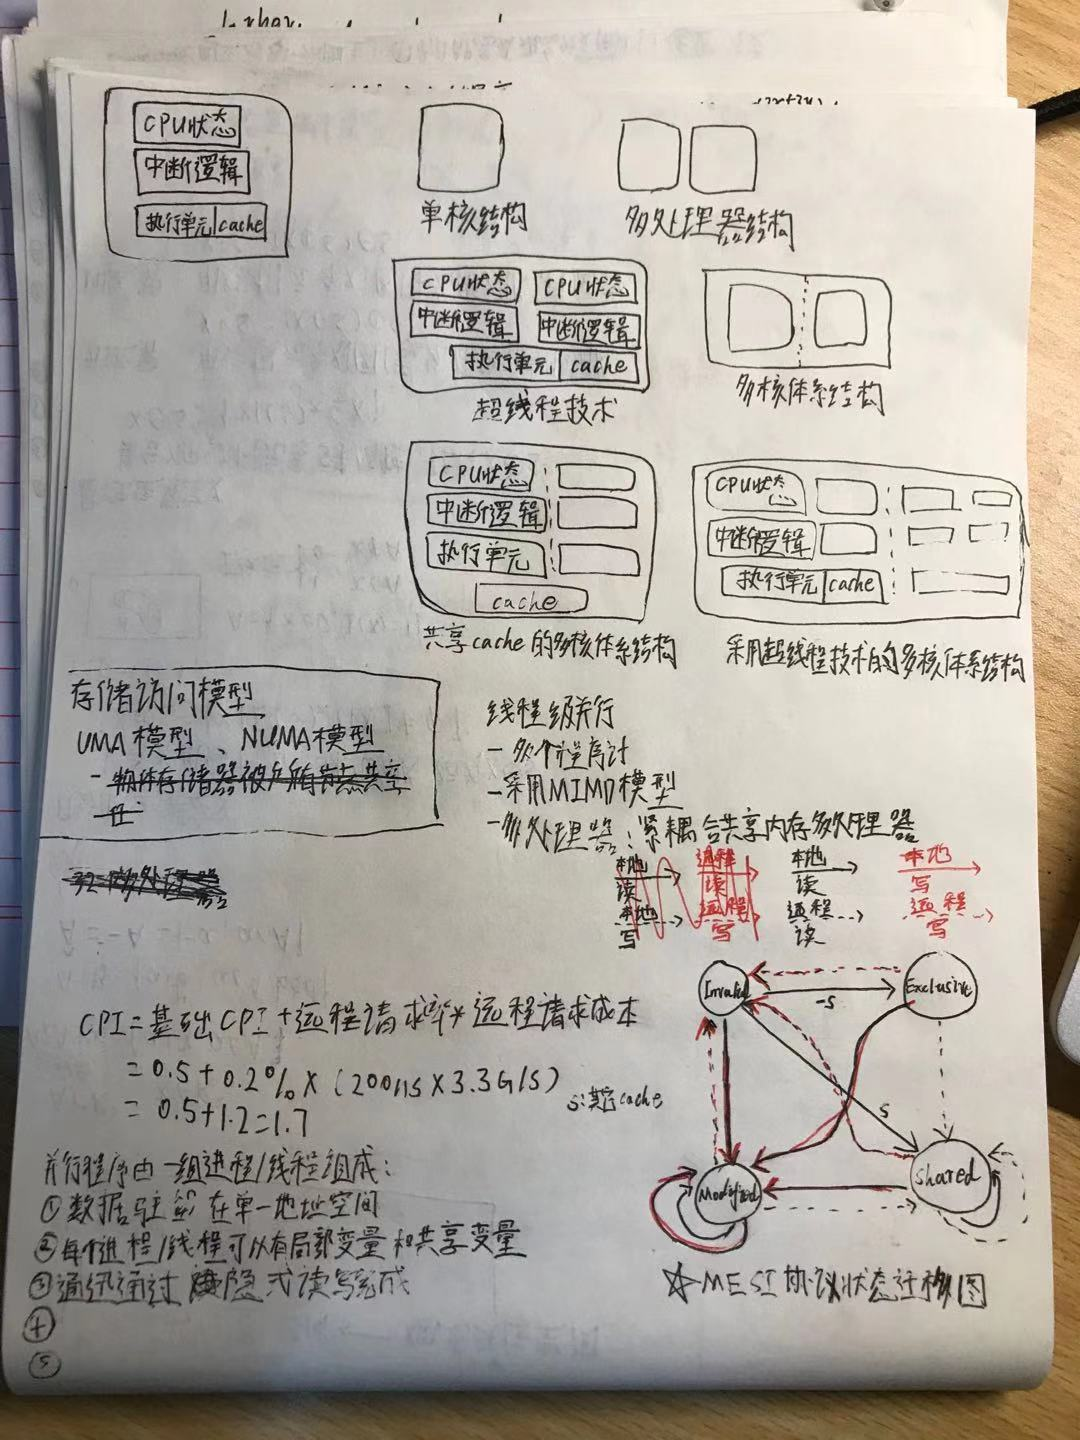 CPU状态
中断逻辑
执行单元 cache
单核结构
多处理器结构
CPU状态 CPU状态
中断逻辑 中断逻辑
执行单元 cache
超线程技术
多核体系结构
CPU状态
中断逻辑
执行单元
cache
共享cache的多核体系结构
CPU状态
中断逻辑
执行单元 cache
采用超线程技术的多核体系结构
存储访问模型
UMA模型、NUMA模型
线程级并行
-多个程序计
-采用MIMD模型
-多处理器:紧耦合共享内存多处理器
本地 远程 本地 本地
读 读 读 写
本地 远程 远程 远程
写 写 读 写
Invalid
-S
Exclusive
S
Modified
Shared
☆MESI协议状态迁移图
CPI=基础CPI+远程请求率*远程请求成本
=0.5+0.2%×(200ns×3.3G/s)
=0.5+1.2=1.7
S:其它cache
并行程序由一组进程/线程组成:
①数据驻留在单一地址空间
②每个进程/线程可以有局部变量和共享变量
③通讯通过隐式读写完成
④
⑤